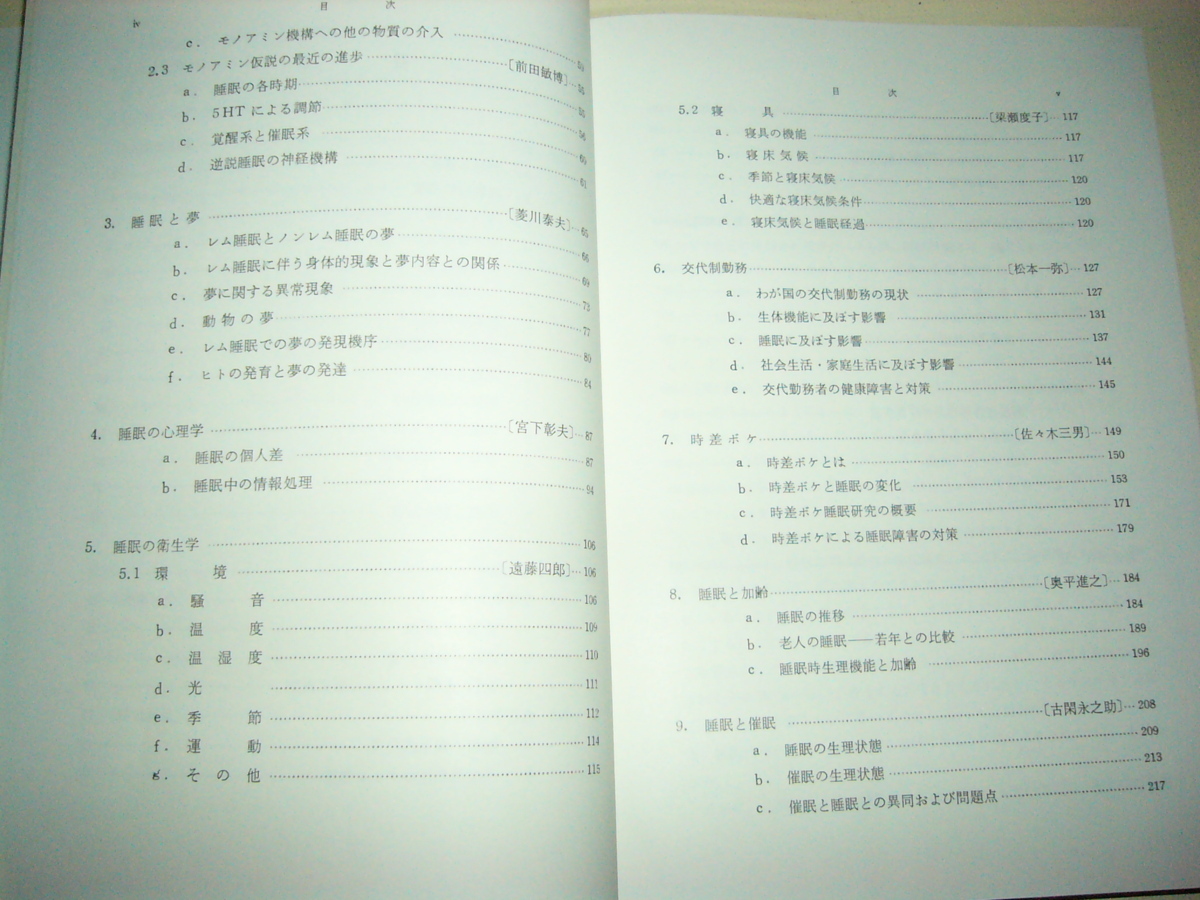 iv
目 次
c. モノアミン機構への他の物質の介入
2.3 モノアミン仮説の最近の進歩 〔前田敏博〕 55
a. 睡眠の各時期 55
b. 5HTによる調節 56
c. 覚醒系と催眠系 60
d. 逆説睡眠の神経機構 61
3. 睡眠と夢 〔菱川泰夫〕 65
a. レム睡眠とノンレム睡眠の夢 66
b. レム睡眠に伴う身体的現象と夢内容との関係 69
c. 夢に関する異常現象 73
d. 動物の夢 77
e. レム睡眠での夢の発現機序 80
f. ヒトの発育と夢の発達 84
4. 睡眠の心理学 〔宮下彰夫〕 87
a. 睡眠の個人差 87
b. 睡眠中の情報処理 94
5. 睡眠の衛生学 106
5.1 環 境 〔遠藤四郎〕 106
a. 騒 音 106
b. 温 度 109
c. 温 湿 度 110
d. 光 111
e. 季 節 112
f. 運 動 114
g. そ の 他 115
目 次
v
5.2 寝 具 〔梁瀬度子〕 117
a. 寝具の機能 117
b. 寝床気候 117
c. 季節と寝床気候 120
d. 快適な寝床気候条件 120
e. 寝床気候と睡眠経過 120
6. 交代制勤務 〔松本一弥〕 127
a. わが国の交代制勤務の現状 127
b. 生体機能に及ぼす影響 131
c. 睡眠に及ぼす影響 137
d. 社会生活・家庭生活に及ぼす影響 144
e. 交代勤務者の健康障害と対策 145
7. 時差ボケ 〔佐々木三男〕 149
a. 時差ボケとは 150
b. 時差ボケと睡眠の変化 153
c. 時差ボケ睡眠研究の概要 171
d. 時差ボケによる睡眠障害の対策 179
8. 睡眠と加齢 〔奥平進之〕 184
a. 睡眠の推移 184
b. 老人の睡眠——若年との比較 189
c. 睡眠時生理機能と加齢 196
9. 睡眠と催眠 〔古閑永之助〕 208
a. 睡眠の生理状態 209
b. 催眠の生理状態 213
c. 催眠と睡眠との異同および問題点 217